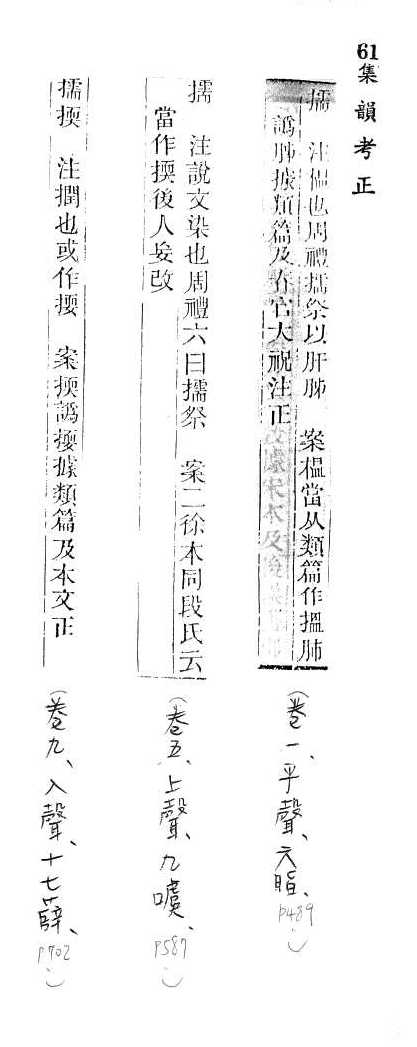 61集韻考正
擩　注榅也周禮擩祭以肝肺　案榅當从類篇作搵肺
譌肺據類篇及春官大祝注正
（卷一、平聲、六脂、p489）
擩　注說文染也周禮六曰擩祭　案二徐本同段氏云
當作㨎後人妄改
（卷五、上聲、九噳、p587）
擩㨎　注擱也或作㨎　案㨎譌㨎據類篇及本文正
（卷九、入聲、十七薛、p702）